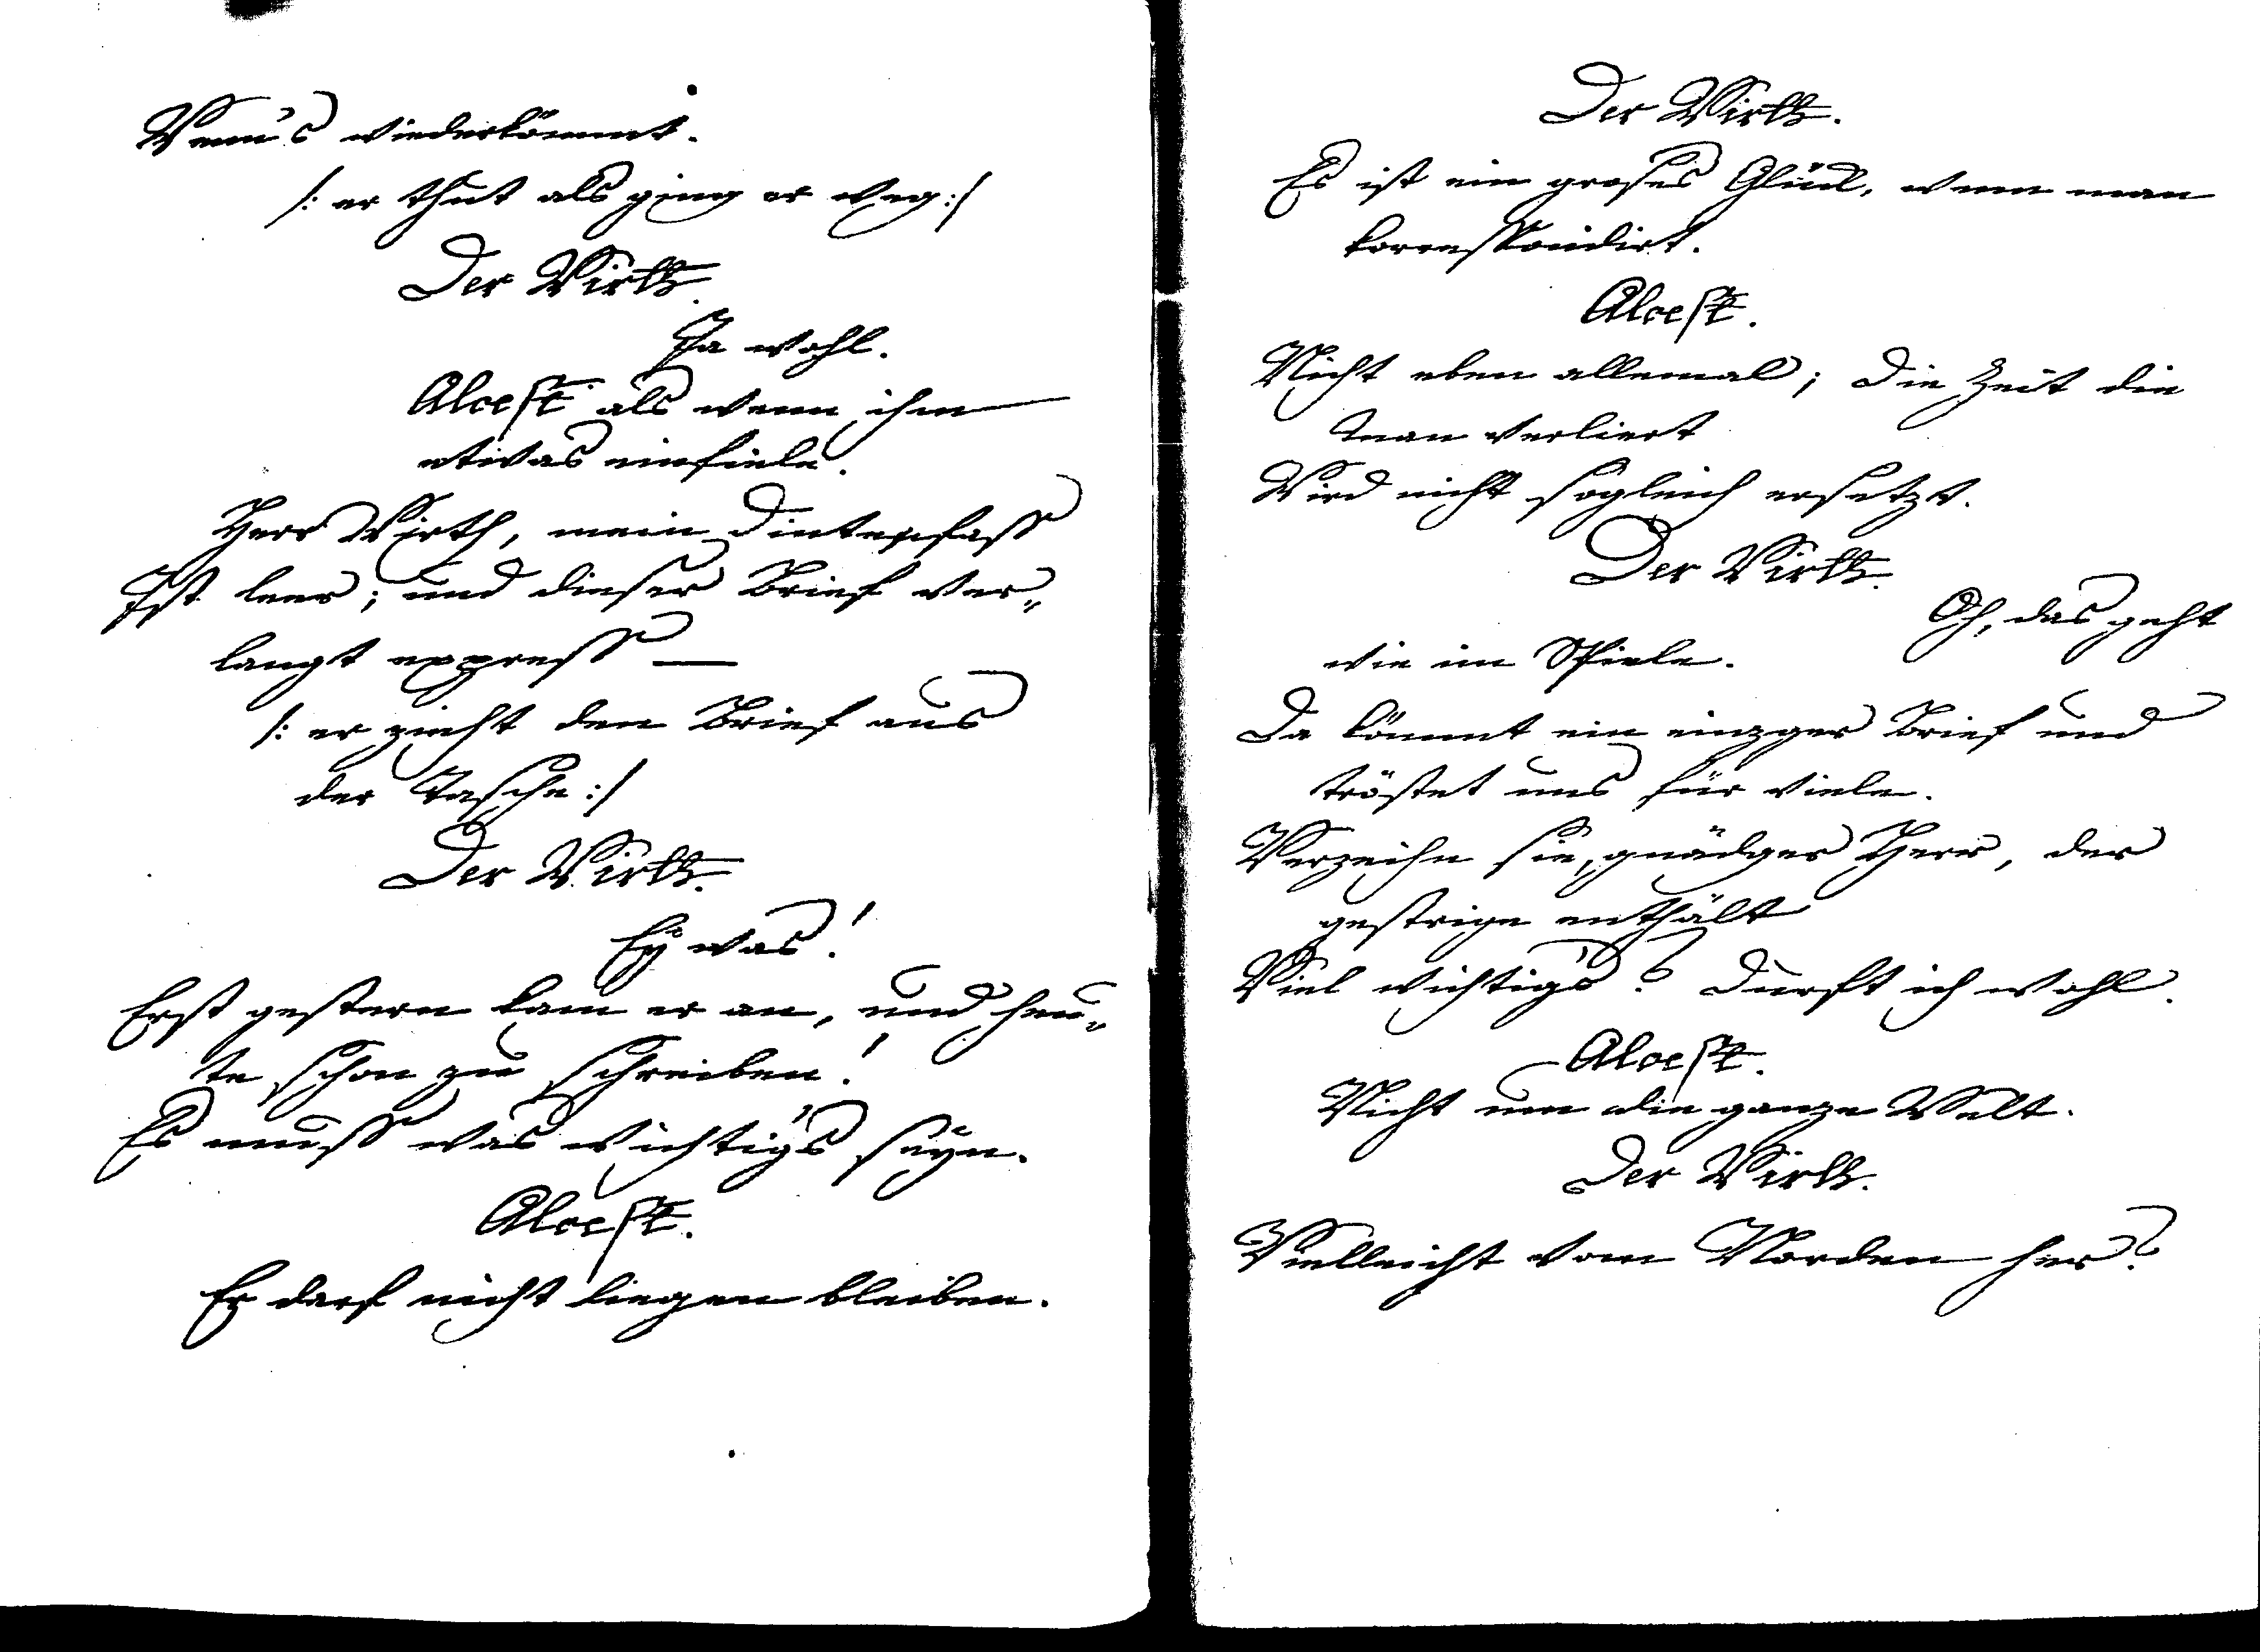 Wenn's wiederkömmt.
/: er thut als ging er weg :/
Der Wirth.
Ja wohl.
Alcest als wenn ihm
etwas einfiele.
Herr Wirth, mein Dintenfass
Ist leer; und dieser Brief ver„
langt express —
/: er zieht den Brief aus
der Tasche :/
Der Wirth.
Ey was!
Erst gestern kam er an, und heu„
te schon zu schreiben!
Es muss was wichtigs seyn.
Alcest.
Er darf nicht liegen bleiben.
Der Wirth.
Es ist ein groses Glück, wenn man
korrespondirt.
Alcest.
Nicht eben allemal; die Zeit die
man verliert
Wird nicht sogleich ersetzt.
Der Wirth.
Oh, das geht
wie im Spiele.
Da kömmt ein einzger Brief und
tröstet uns für viele.
Verzeihn sie, gnädger Herr, der
gestrige enthält
Viel wichtigs? Dürft ich wohl.
Alcest.
Nicht um die ganze Welt.
Der Wirth.
Vielleicht vom Norden her?